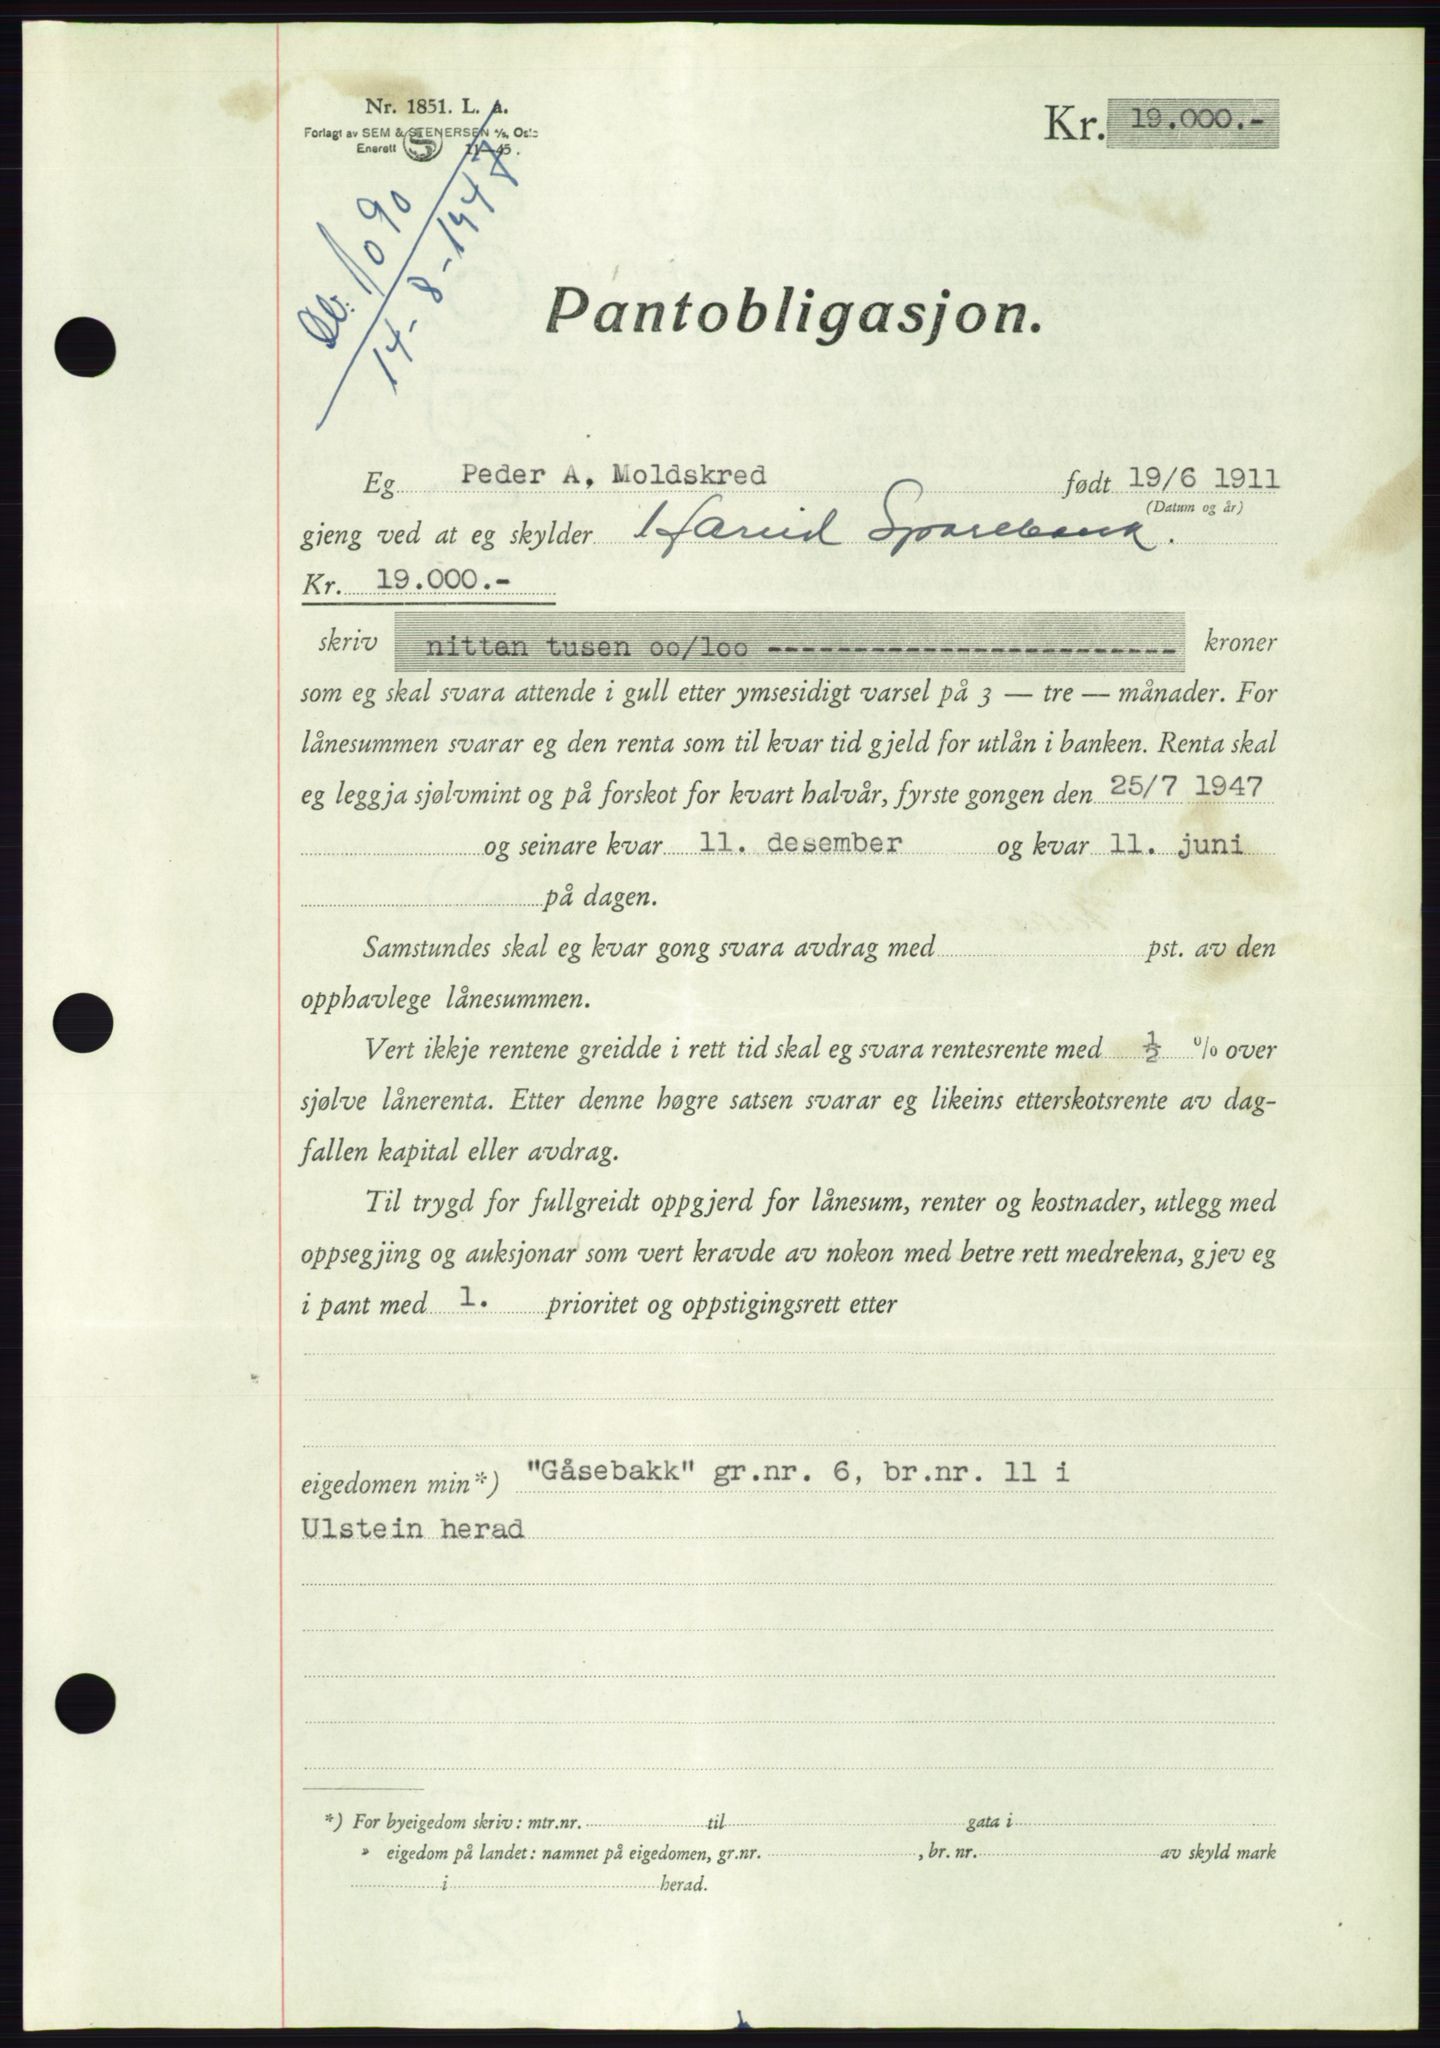 Nr. 1851. L. A.
Forlagt av SEM & STENERSEN A/S, Oslo
Enerett S 11-45.
Kr. 19.000.-
Db. 1090
14-8-1947
Pantobligasjon.
Eg Peder A. Moldskred født 19/6 1911
(Datum og år)
gjeng ved at eg skylder Hareid Sparebank.
Kr. 19.000.-
skriv nittan tusen oo/loo ------------------------ kroner
som eg skal svara attende i gull etter ymsesidigt varsel på 3 — tre — månader. For
lånesummen svarar eg den renta som til kvar tid gjeld for utlån i banken. Renta skal
eg leggja sjølvmint og på forskot for kvart halvår, fyrste gongen den 25/7 1947
og seinare kvar 11. desember og kvar 11. juni
på dagen.
Samstundes skal eg kvar gong svara avdrag med pst. av den
opphavlege lånesummen.
Vert ikkje rentene greidde i rett tid skal eg svara rentesrente med ½ % over
sjølve lånerenta. Etter denne høgre satsen svarar eg likeins etterskotsrente av dag-
fallen kapital eller avdrag.
Til trygd for fullgreidt oppgjerd for lånesum, renter og kostnader, utlegg med
oppsegjing og auksjonar som vert kravde av nokon med betre rett medrekna, gjev eg
i pant med 1. prioritet og oppstigingsrett etter
eigedomen min*) "Gåsebakk" gr.nr. 6, br.nr. 11 i
Ulstein herad
*) For byeigedom skriv: mtr.nr. til gata i
» eigedom på landet: namnet på eigedomen, gr.nr. , br. nr. av skyld mark
i herad.